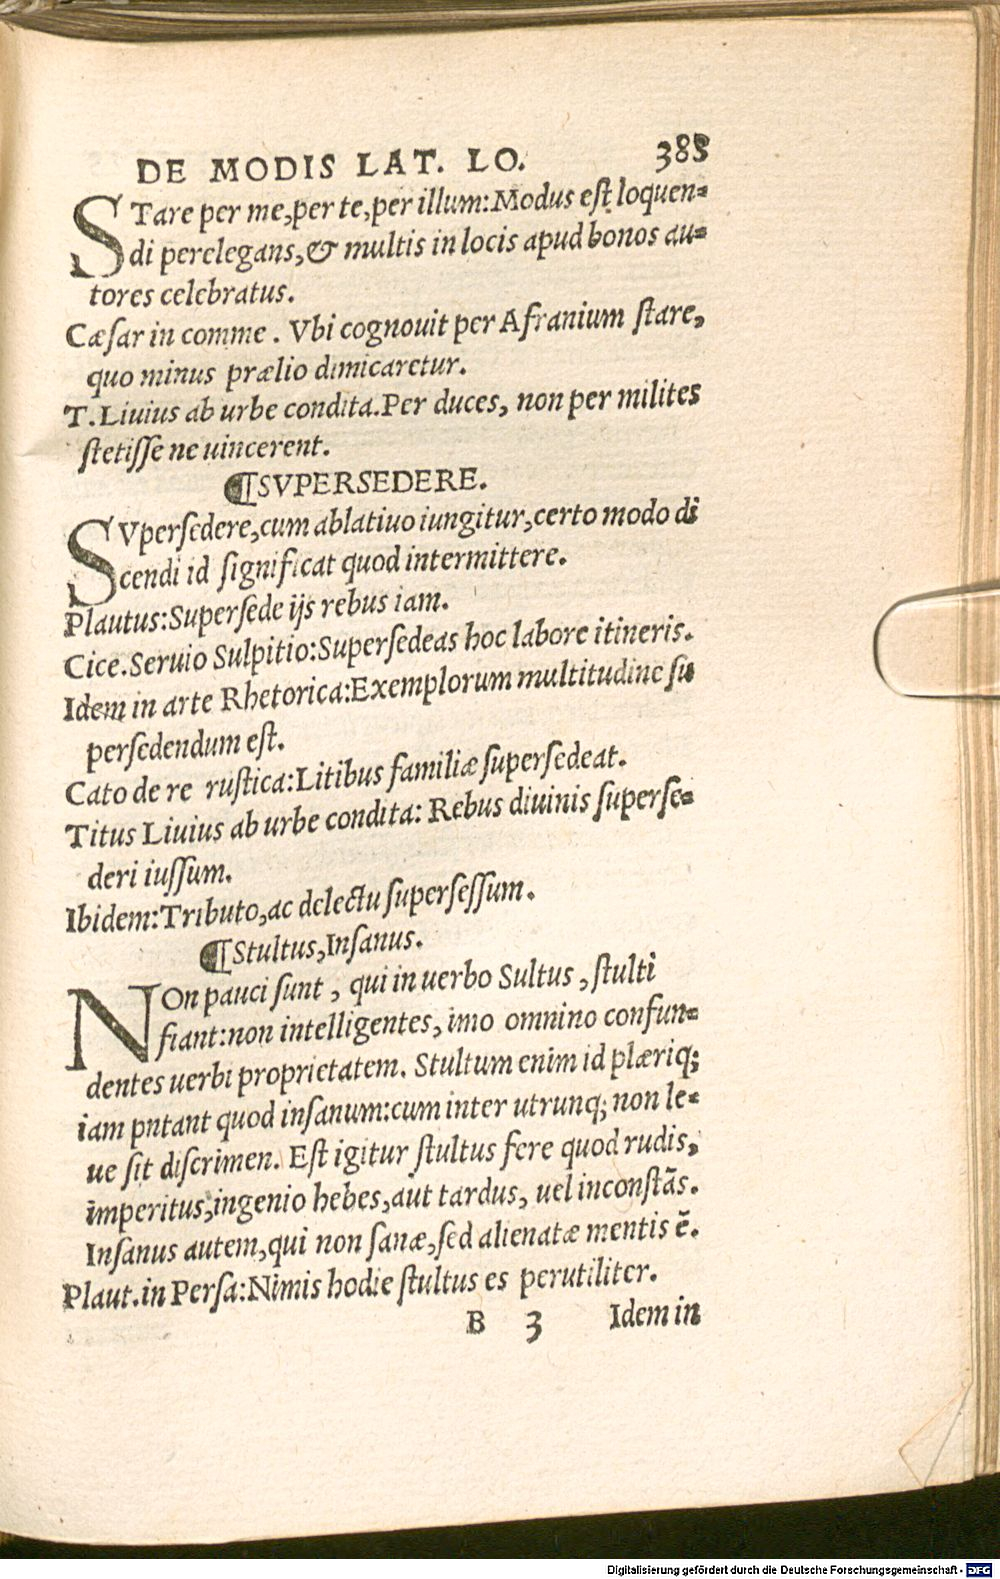 DE MODIS LAT. LO. 385
STare per me,per te,per illum:Modus est loquen=
di perelegans,& multis in locis apud bonos au=
tores celebratus.
Cæsar in comme. Vbi cognouit per Afranium stare,
quo minus prælio dimicaretur.
T.Liuius ab urbe condita.Per duces, non per milites
stetisse ne uincerent.
¶SVPERSEDERE.
SVpersedere,cum ablatiuo iungitur,certo modo di
cendi id significat quod intermittere.
Plautus:Supersede ijs rebus iam.
Cice.Seruio Sulpitio:Supersedeas hoc labore itineris.
Idem in arte Rhetorica:Exemplorum multitudine su
persedendum est.
Cato de re rustica:Litibus familiæ supersedeat.
Titus Liuius ab urbe condita: Rebus diuinis superse=
deri iussum.
Ibidem:Tributo,ac delectu supersessum.
¶Stultus,Insanus.
NOn pauci sunt, qui in uerbo Sultus, stulti
fiant:non intelligentes, imo omnino confun=
dentes uerbi proprietatem. Stultum enim id plæriq;
iam pntant quod insanum:cum inter utrunq; non le=
ue sit discrimen. Est igitur stultus fere quod rudis,
imperitus,ingenio hebes,aut tardus, uel inconstãs.
Insanus autem,qui non sanæ,sed alienatæ mentis ẽ.
Plaut.in Persa:Nimis hodie stultus es perutiliter.
B 3 Idem in
Digitalisierung gefördert durch die Deutsche Forschungsgemeinschaft - DFG